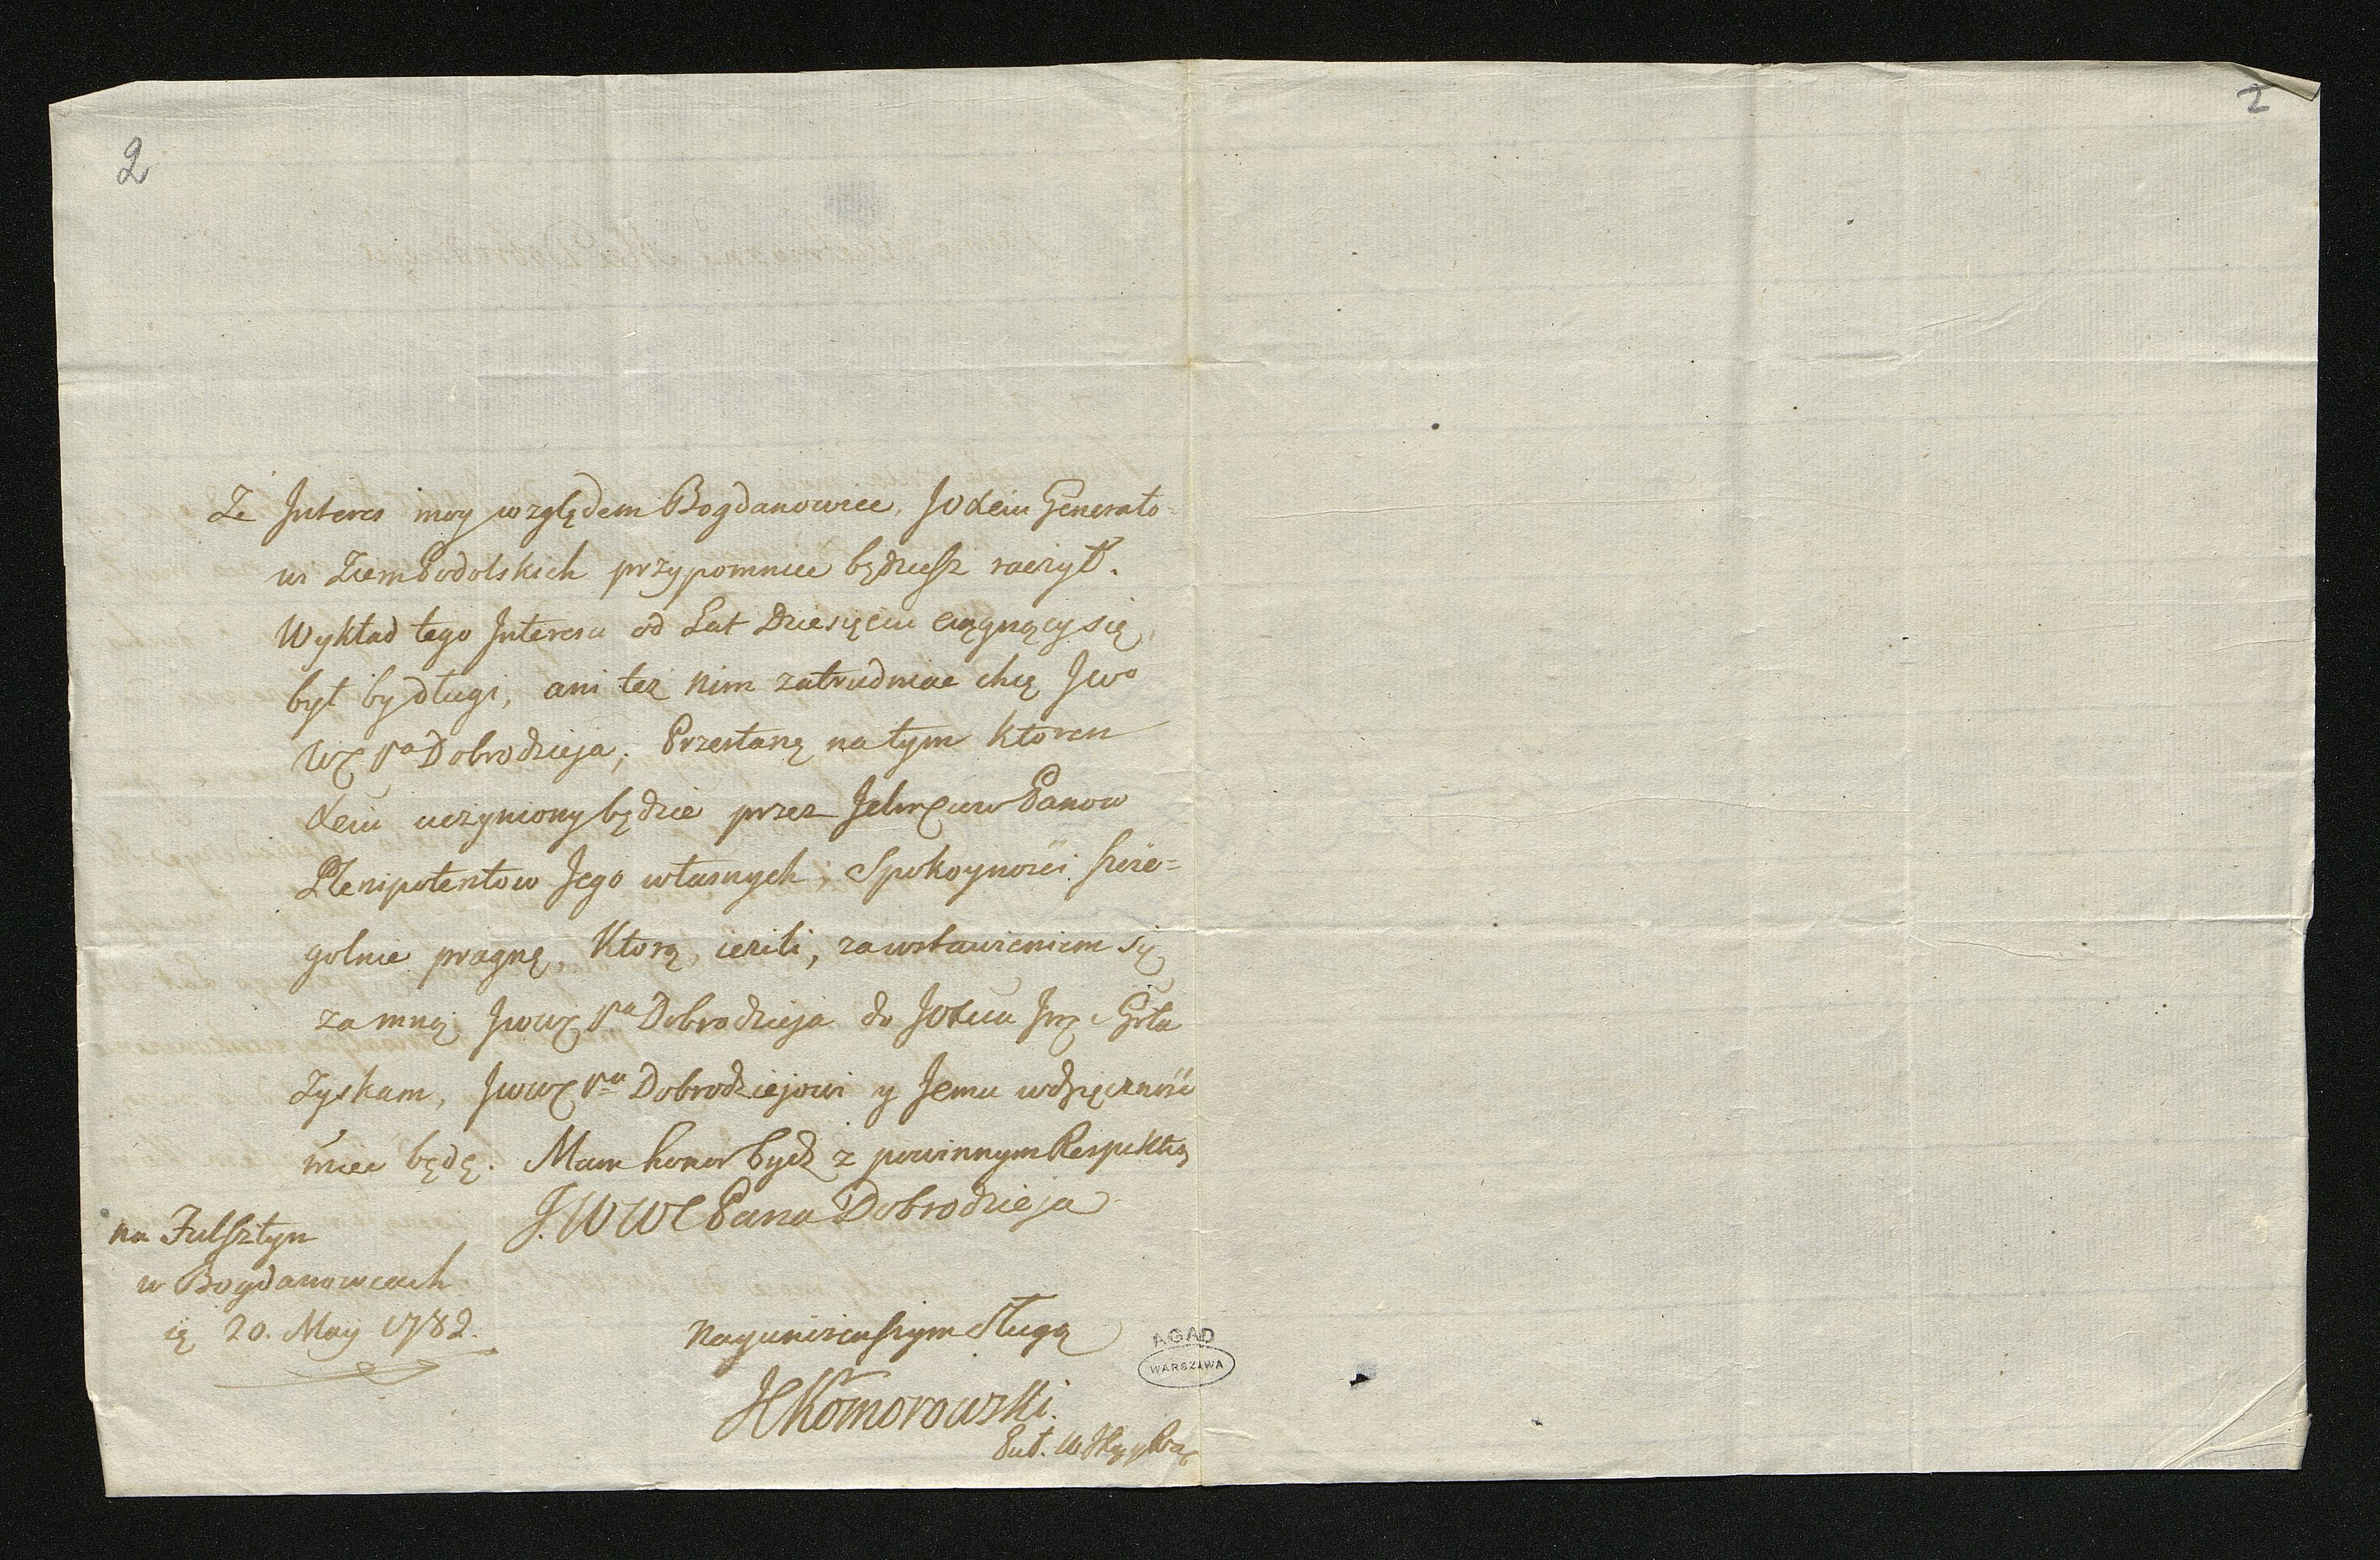 2
2
Że Jnteres moy względem Bogdanowiec, JOXciu Generało
wi Ziem Podolskich przypomnieć będziesz raczył.
Wykład tego Jnteresu od Lat Dziesięciu ciągnący się,
był by długi, ani też nim zatrudniać chcę Jwo
WC Pa Dobrodzieja; Przestanę na tym ktoren
Xciu uczyniony będzie przez Panow
Plenipotentow Jego własnych; Spokoyności szcze=
golnie pragnę, Ktorą, ieżili, za wstawieniem się
za mną JWWC Pa Dobrodzieja do JOXcia
Zyskam, JWWC Pu Dobrodziejowi y Jemu wdzięczność
mieć będę. Mam honor bydź z powinnym Respektem
J. W WC Pana Dobrodzieja
na Fulsztyn
w Bogdanowcach
20. May 1782.
Nayuniżenszym Sługą
Komorowski.
AGAD
WARSZAWA